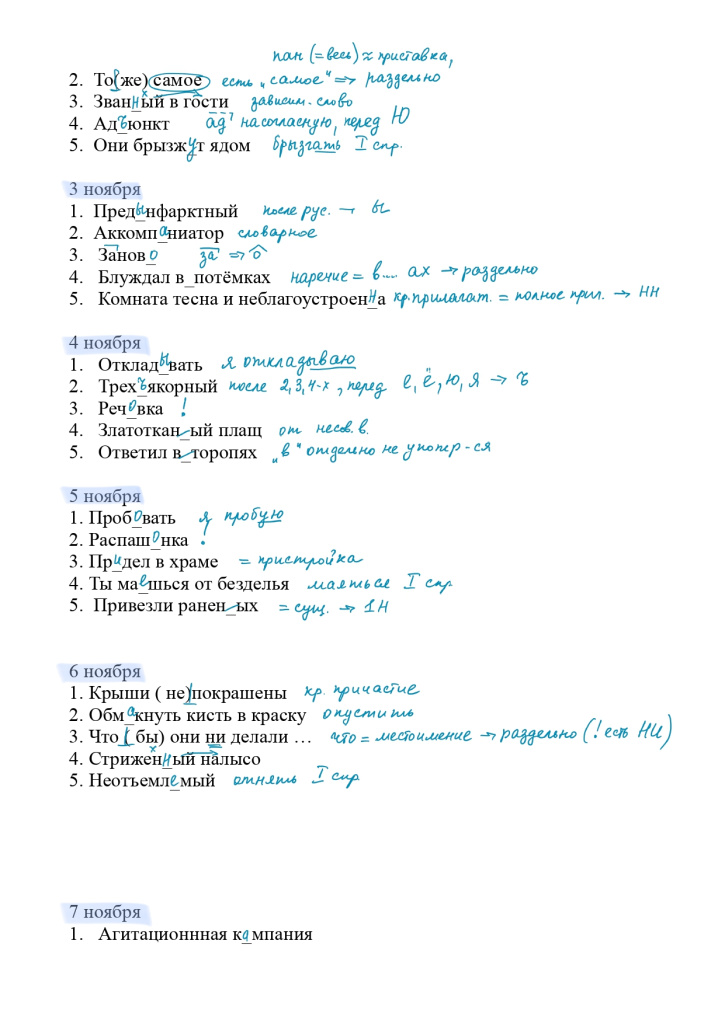 пан (=весь) ≈ приставка,
2. То(же) самое есть "самое" ⇒ раздельно
3. Званный в гости зависим. слово
4. Адъюнкт ад на согласную, перед Ю
5. Они брызжут ядом брызгать I спр.
3 ноября
1. Предынфарктный после рус. → ы
2. Аккомпаниатор словарное
3. Заново за ⇒ о
4. Блуждал в_потёмках наречие = в... ах → раздельно
5. Комната тесна и неблагоустроенна кр. прилагат. = полное прил. → НН
4 ноября
1. Откладывать я откладываю
2. Трехъякорный после 2,3,4-х, перед е, ё, ю, я → ъ
3. Речовка !
4. Златоткан_ый плащ от несов. в.
5. Ответил в_торопях "в" отдельно не употр-ся
5 ноября
1. Пробовать я пробую
2. Распашонка !
3. Придел в храме = пристройка
4. Ты маешься от безделья маяться I спр
5. Привезли ранен_ых = сущ. → 1Н
6 ноября
1. Крыши ( не)покрашены кр. причастие
2. Обмакнуть кисть в краску опустить
3. Что ( бы) они ни делали … что = местоимение → раздельно (! есть НИ)
4. Стриженный налысо
5. Неотъемлемый отнять I спр
7 ноября
1. Агитационнная кампания